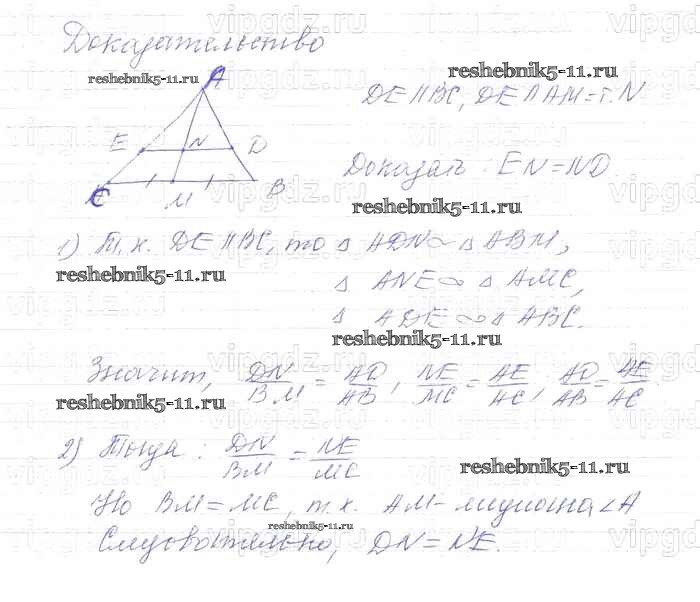 Доказательство
reshebnik5-11.ru
reshebnik5-11.ru
A
DE || BC, DE ∩ AM = т. N
E N D
Доказать: EN = ND.
C M B
reshebnik5-11.ru
1) Т.к. DE || BC, то Δ ADN ~ Δ ABM,
reshebnik5-11.ru
Δ ANE ~ Δ AMC,
Δ ADE ~ Δ ABC.
reshebnik5-11.ru
Значит, DN/BM = AD/AB, NE/MC = AE/AC, AD/AB = AE/AC.
reshebnik5-11.ru
2) Тогда: DN/BM = NE/MC
reshebnik5-11.ru
Но BM = MC, т.к. AM - медиана ∠A
reshebnik5-11.ru
Следовательно, DN = NE.
vipgdz.ru